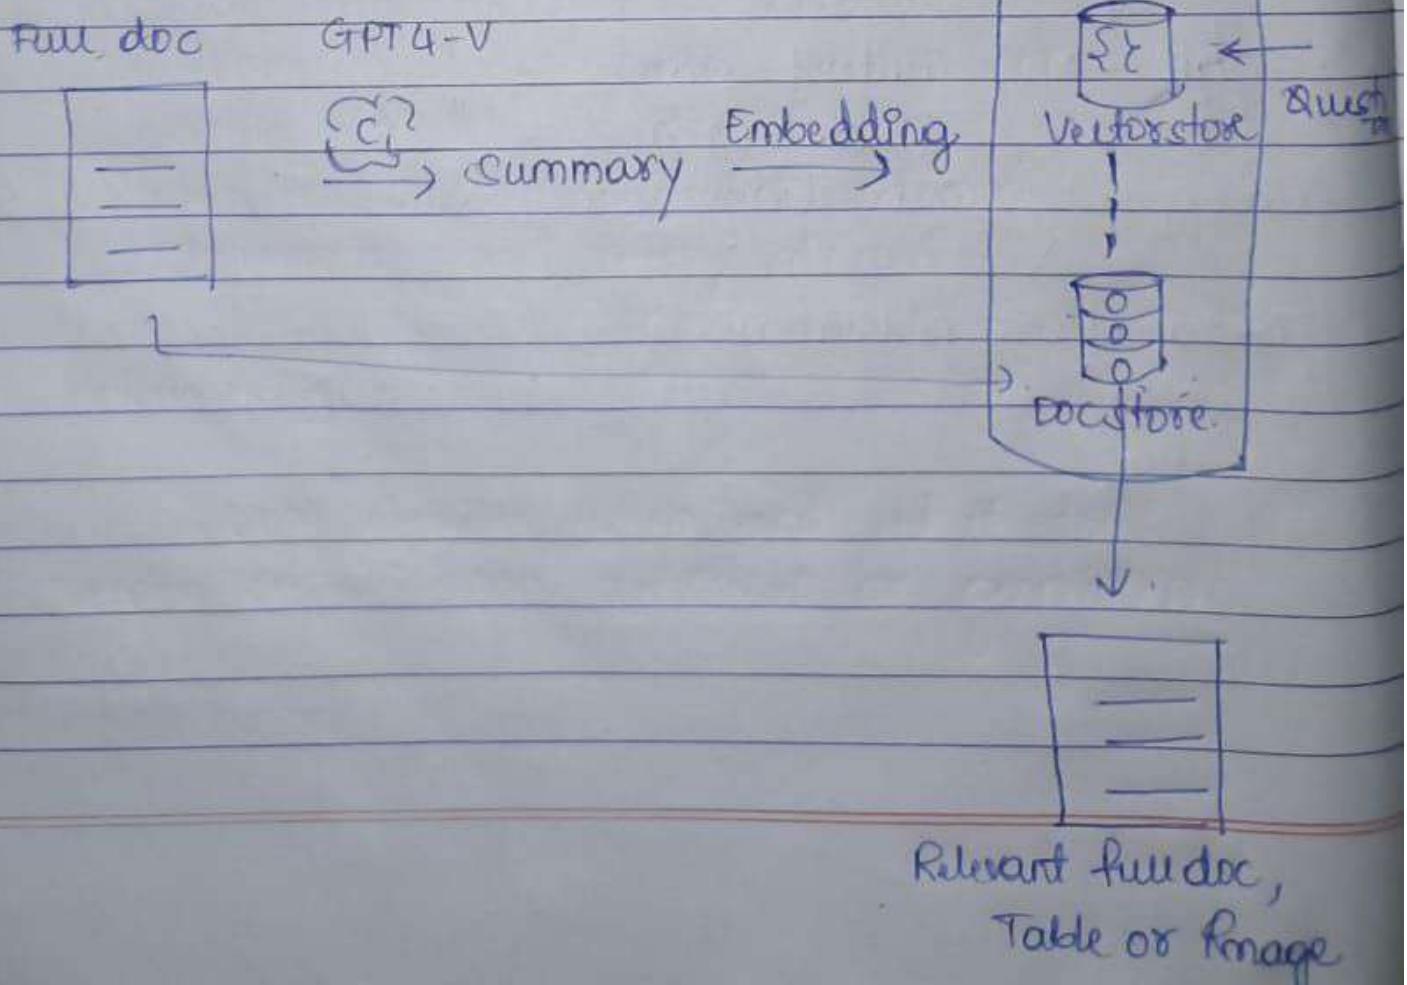 Full doc
GPT4-V
Summary
Embedding
Vectorstore
Docstore.
Relevant full doc,
Table or Image